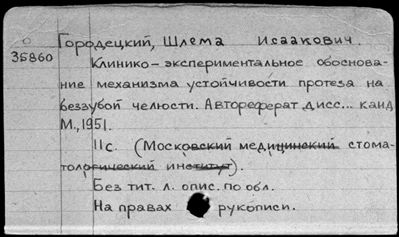 Городецкий, Шлема Исаакович.
35860
Клинико-экспериментальное обоснова-
ние механизма устойчивости протеза на
беззубой челюсти. Автореферат дисс... канд
М., 1951.
11с. (Московский медицинский стома-
тологический институт).
Без тит. л. опис. по обл.
На правах рукописи.